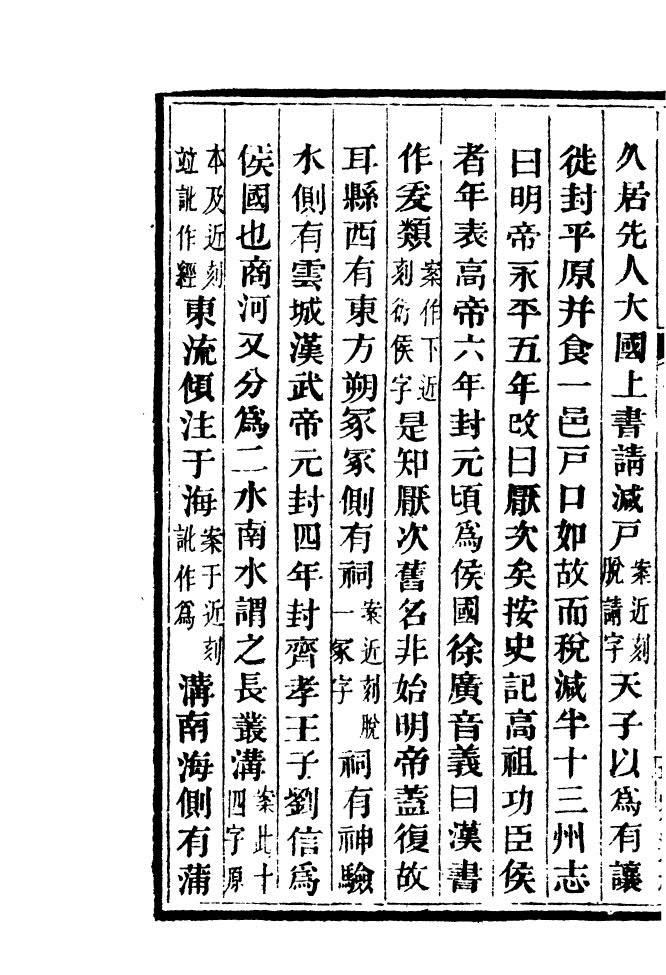 久居先人大國上書請減戶案近刻脫請字天子以爲有讓
徙封平原并食一邑戸口如故而稅減半十三州志
曰明帝永平五年改曰厭次矣按史記高祖功臣侯
者年表高帝六年封元頃爲侯國徐廣音義曰漢書
作爰類案作下近刻衍侯字是知厭次舊名非始明帝蓋復故
耳縣西有東方朔冢冢側有祠案近刻脫一冢字祠有神驗
水側有雲城漢武帝元封四年封齊孝王子劉信爲
侯國也商河又分爲二水南水謂之長叢溝案此十四字原
本及近刻竝訛作經東流傾注于海案于近刻訛作爲溝南海側有蒲